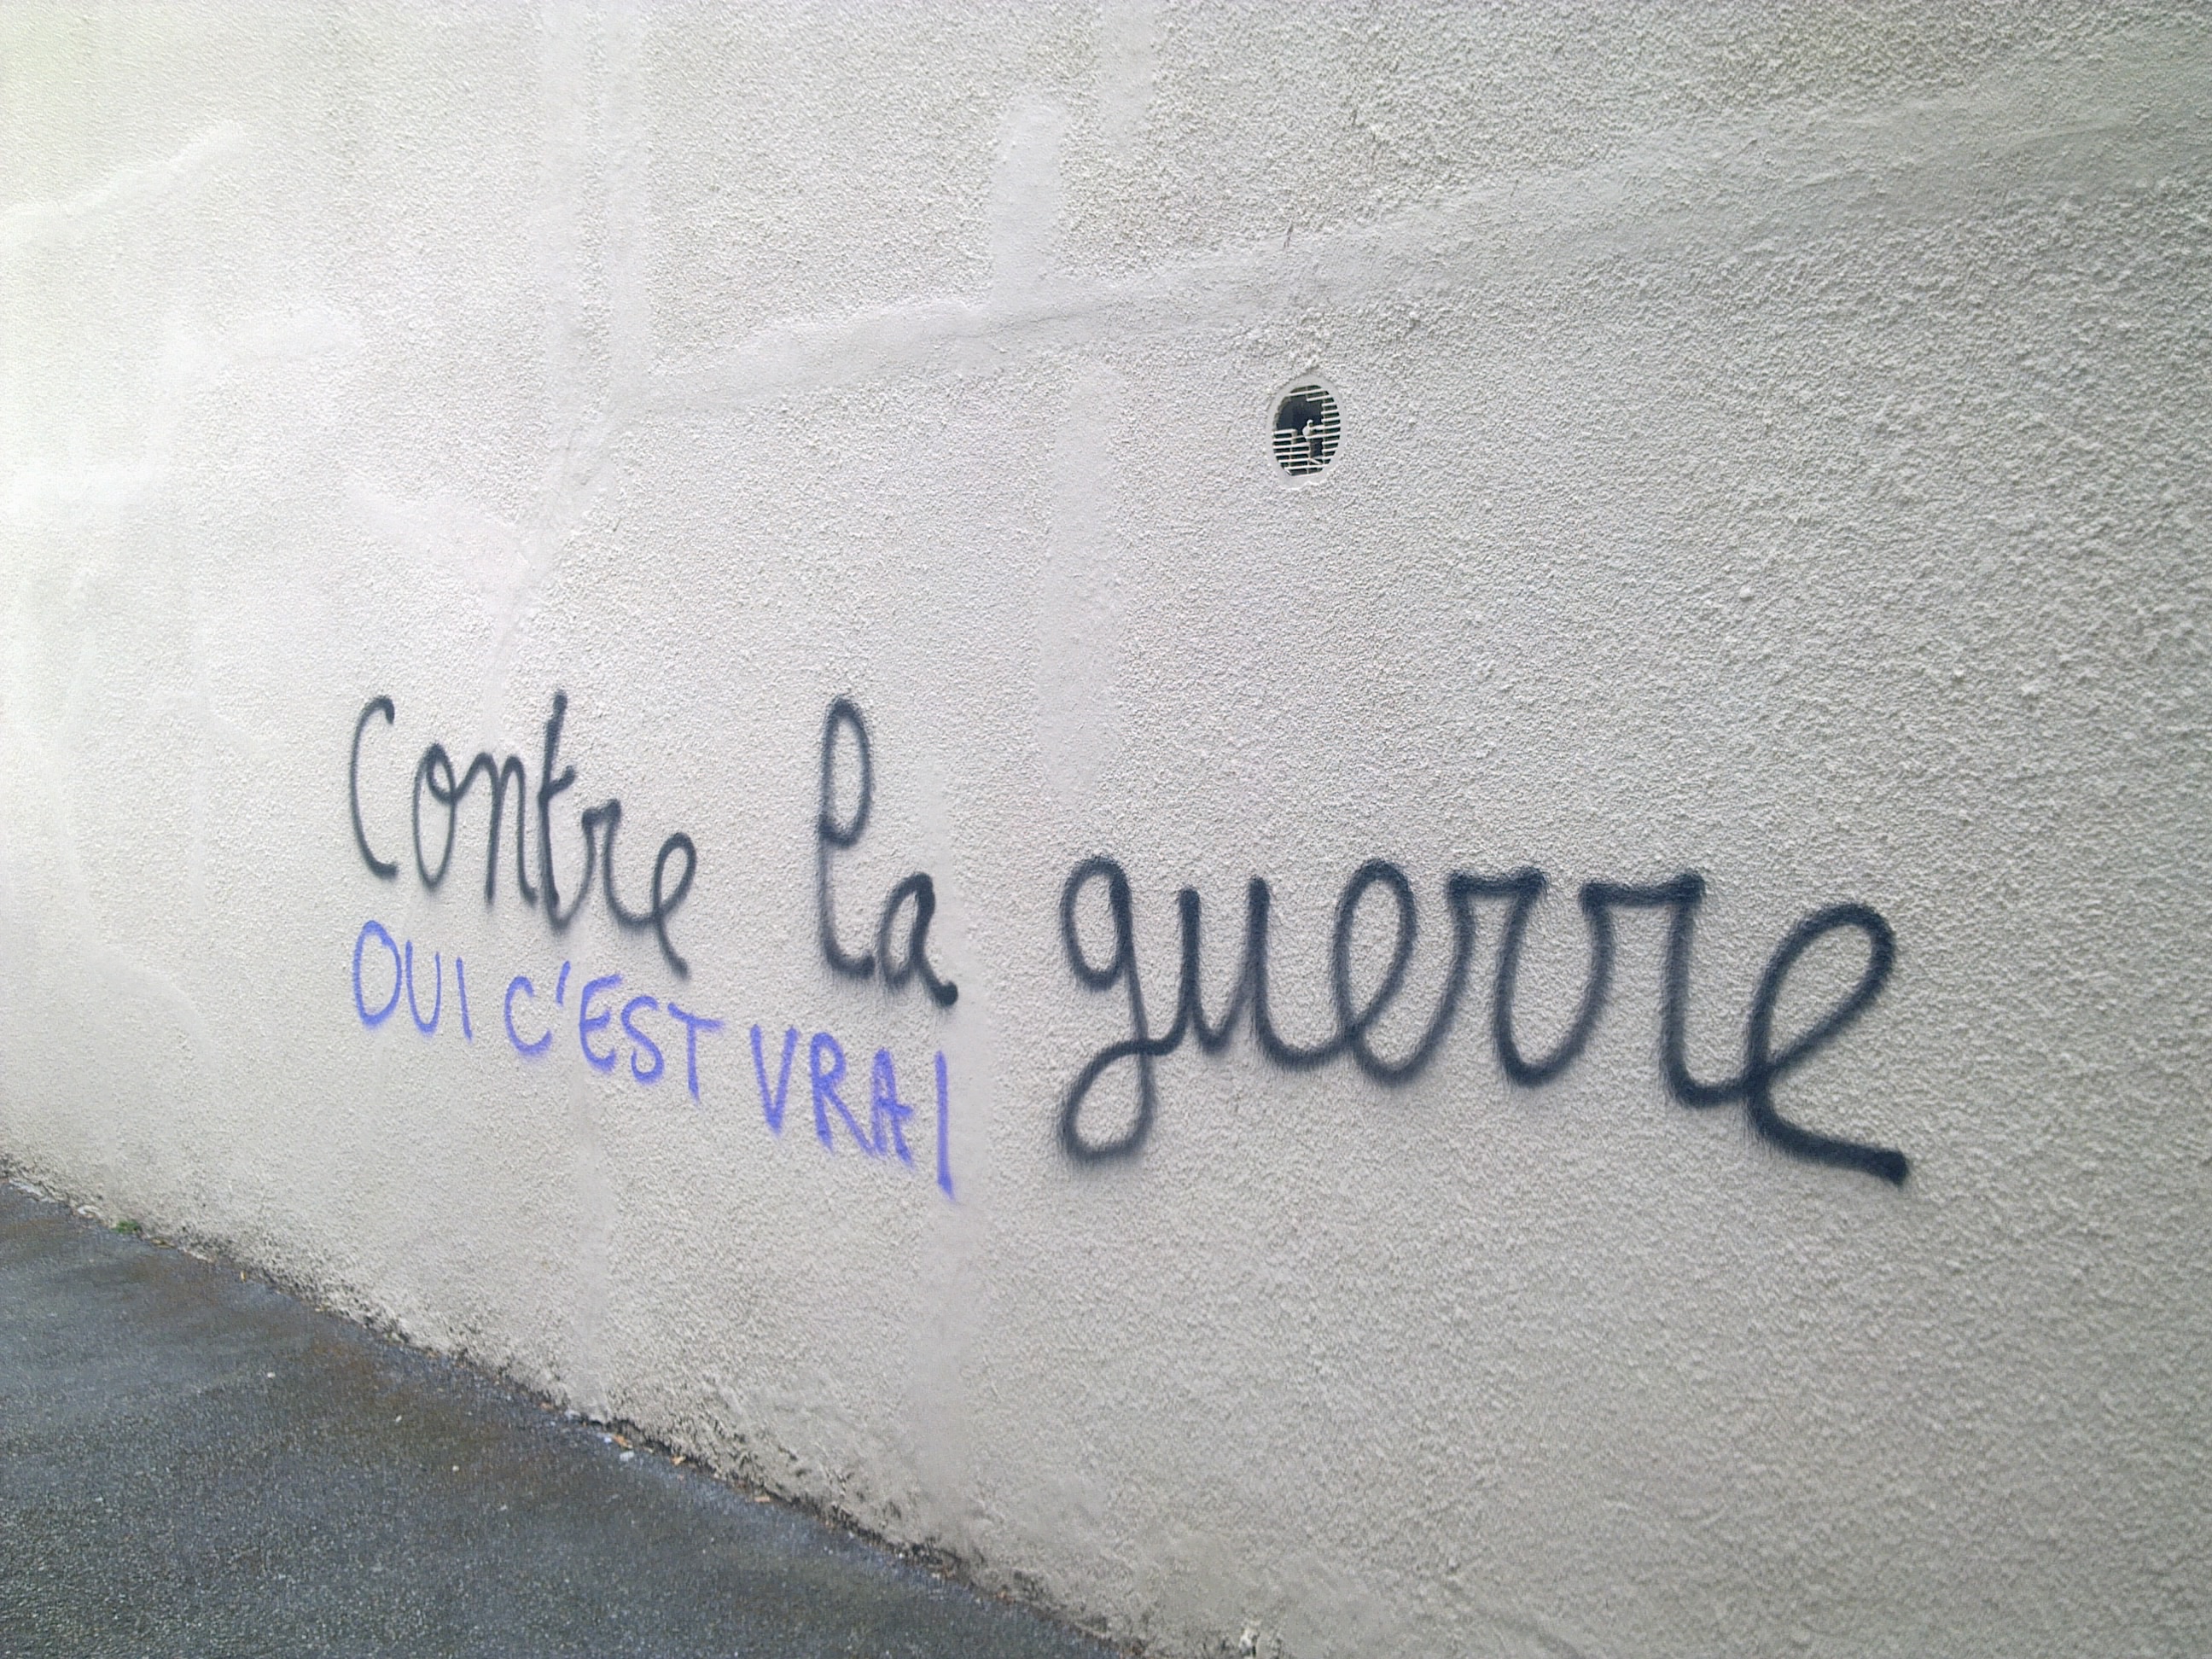 contre la guerre
OUI C'EST VRAI